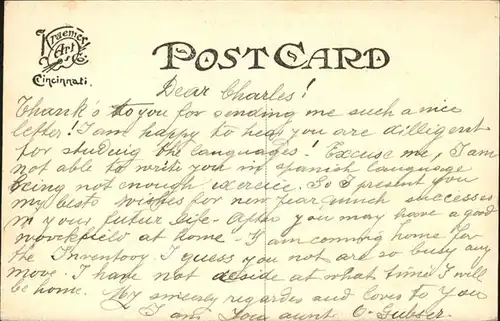 Kraemer Art Co.
Cincinnati.
POST CARD
Dear Charles!
Thank's to you for sending me such a nice
letter! I am happy to hear you are dilligent
for studuig the languages! Excuse me, I am
not able to write you in spanish language
being not enough exercie. So I present you
my bests wishes for new year, much successes
in your futur life - After you may have a good
woorkfield at home - I am comnig home for
the Inventory. I guess you not are so busy any
move. I have not deside at what time I will
be home. My sincsely regardes and loves to you
I am You aunt O. Gubser.